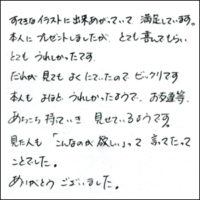 すてきなイラストに出来あがっていて 満足しています。
本人に プレゼントしましたが、とても 喜んでもらい
とても うれしかったです。
だれが 見ても よくにていたので ビックリです
本人も よほど うれしかったようで、お友達等、
あちこち 持っていき 見せているようです。
見た人も 「こんなのが 欲しい」って 言ってたって
ことでした。
ありがとう ございました。